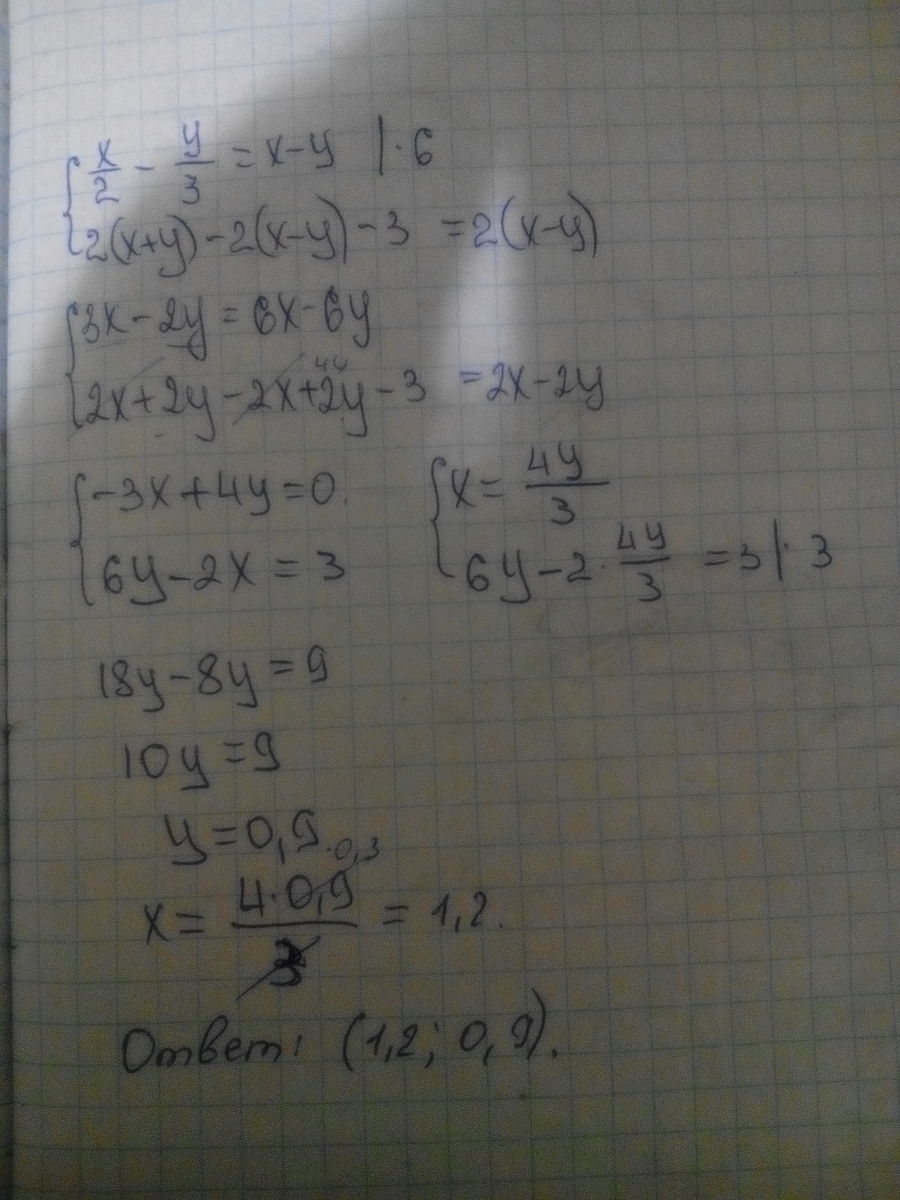 { x/2 - y/3 = x-y |·6
2(x+y)-2(x-y)-3 = 2(x-y)
{ 3x-2y = 6x-6y
2x+2y-2x+2y-3 = 2x-2y
4y
{ -3x+4y=0.
6y-2x = 3
{ x = 4y/3
6y-2·4y/3 = 3 |·3
18y-8y=9
10y=9
y=0,9
0,3
x = 4·0,9/3 = 1,2.
Ответ: (1,2; 0,9).